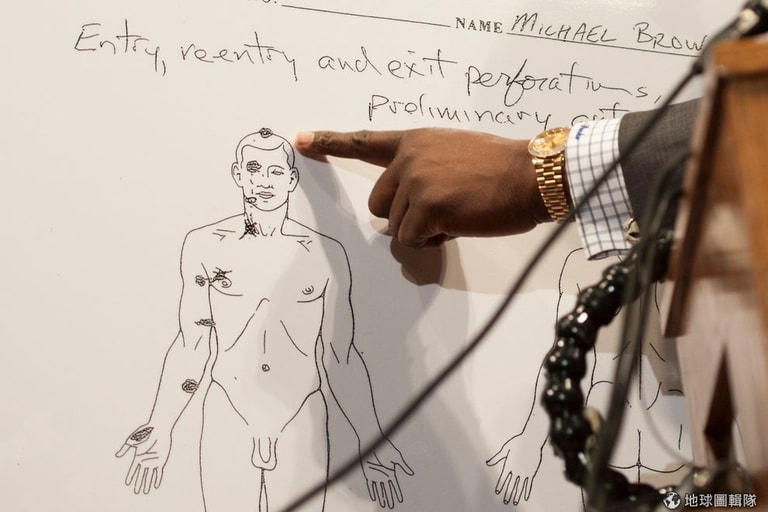 NAME MICHAEL BROW
Entry, reentry and exit perforations,
preliminary
地球圖輯隊